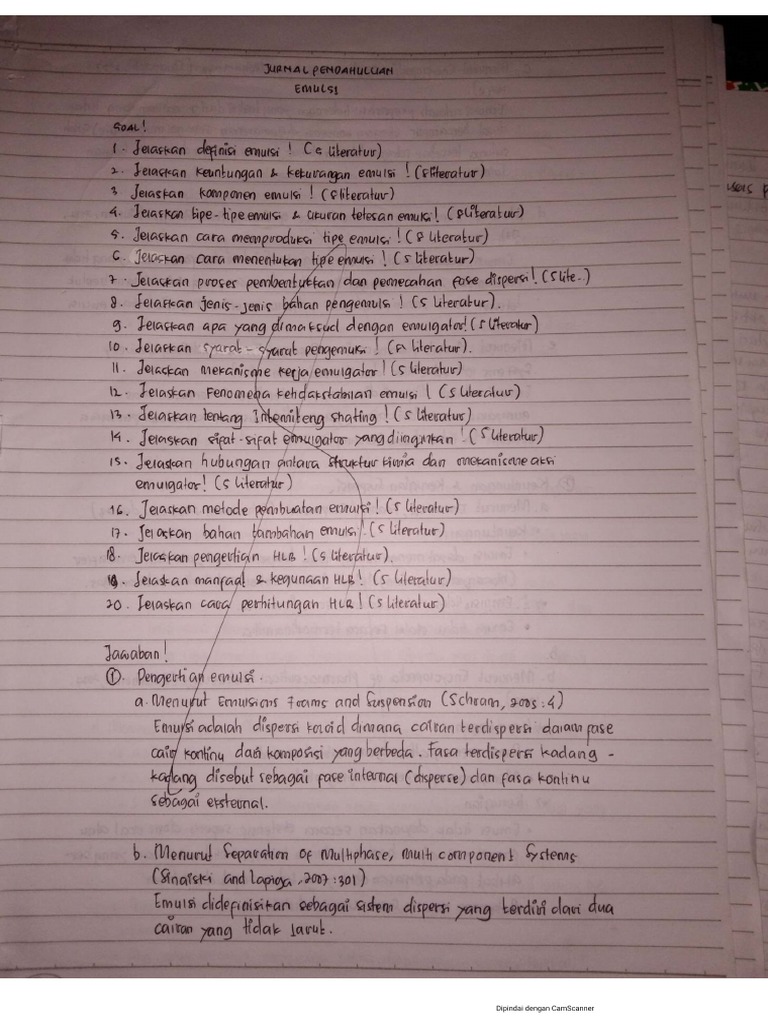 JURNAL PENDAHULUAN
EMULSI
SOAL!
1. Jelaskan definisi emulsi! (5 literatur)
2. Jelaskan keuntungan & kekurangan emulsi! (5 literatur)
3 Jelaskan komponen emulsi! (5 literatur)
4. Jelaskan tipe-tipe emulsi & ukuran tetesan emulsi! (5 literatur)
5. Jelaskan cara memproduksi tipe emulsi! (5 literatur)
6. Jelaskan cara menentukan tipe emulsi! (5 literatur)
7. Jelaskan proses pembentukkan dan pemecahan fase dispersi! (5 lite..)
8. Jelaskan jenis-jenis bahan pengemulsi! (5 literatur).
9. Jelaskan apa yang dimaksud dengan emulgator! (5 literatur)
10. Jelaskan syarat-syarat pengemulsi! (5 literatur).
11. Jelaskan mekanisme kerja emulgator! (5 literatur)
12. Jelaskan Fenomena ketidakstabilan emulsi! (5 literatur)
13. Jelaskan tentang Intermiteng shating! (5 literatur)
14. Jelaskan sifat-sifat emulgator yang diinginkan! (5 literatur)
15. Jelaskan hubungan antara struktur kimia dan mekanisme aksi
emulgator! (5 literatur)
16. Jelaskan metode pembuatan emulsi! (5 literatur)
17. Jelaskan bahan tambahan emulsi! (5 literatur)
18. Jelaskan pengertian HLB! (5 literatur).
19. Jelaskan manfaat & kegunaan HLB! (5 literatur)
20. Jelaskan cara perhitungan HLB! (5 literatur)
Jawaban!
1. Pengertian emulsi.
a. Menurut Emulsions Foams and Suspension (Schram, 2005:4)
Emulsi adalah dispersi koloid dimana cairan terdispersi dalam fase
cair kontinu dari komposisi yang berbeda. Fasa terdispersi kadang-
kadang disebut sebagai fase internal (disperse) dan fasa kontinu
sebagai eksternal.
b. Menurut Separation of Multiphase, Multi component Systems
(Sinaiski and Lapiga, 2007:301)
Emulsi didefinisikan sebagai sistem dispersi yang terdiri dari dua
cairan yang tidak larut.
Dipindai dengan CamScanner